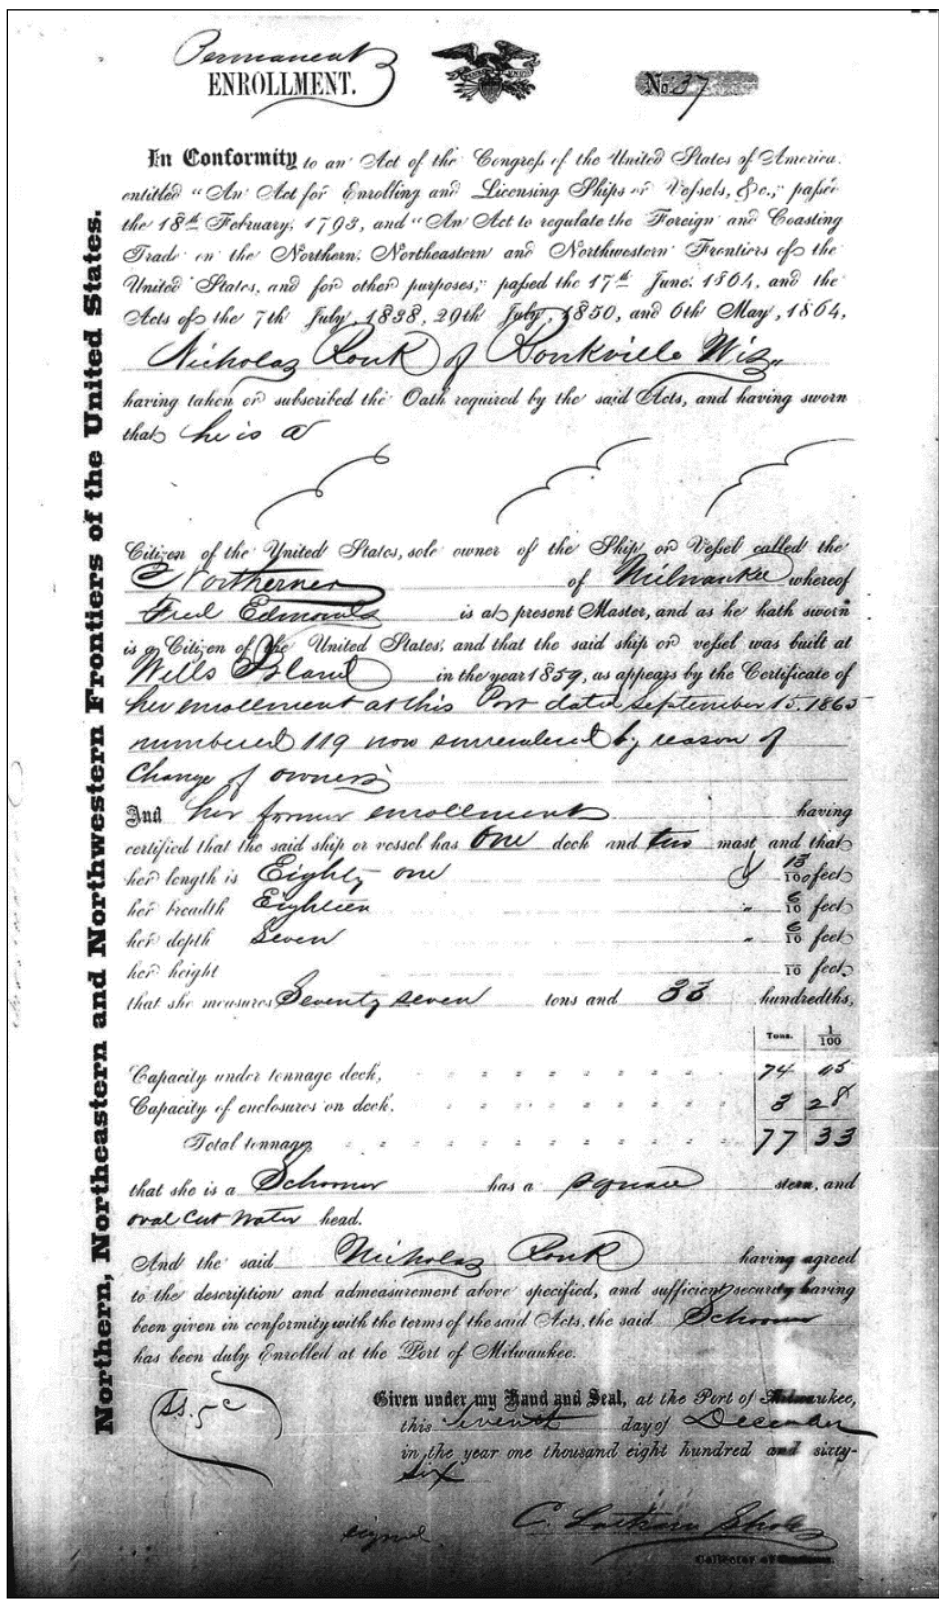 Permanent
ENROLLMENT.
No. 37
In Conformity to an Act of the Congress of the United States of America.
entitled "An Act for Enrolling and Licensing Ships or Vessels, &c.," passed
the 18th February, 1793, and "An Act to regulate the Foreign and Coasting
Trade on the Northern, Northeastern and Northwestern Frontiers of the
United States, and for other purposes," passed the 17th June, 1864, and the
Acts of the 7th July, 1838, 29th July, 1850, and 6th May, 1864,
Nicholas Ronk of Ronkville Wis.
having taken or subscribed the Oath required by the said Acts, and having sworn
that he is a
Citizen of the United States, sole owner of the Ship or Vessel called the
Northerner of Milwaukee whereof
Fred Edmonds is at present Master, and as he hath sworn
is a Citizen of the United States, and that the said ship or vessel was built at
Wells Island in the year 1859, as appears by the Certificate of
her enrollment at this Port dated September 15. 1865
numbered 119 now surrendered by reason of
Change of owners
And her former enrollment having
certified that the said ship or vessel has One deck and two mast and that
her length is Eighty one 13/100 feet
her breadth Eighteen " 6/10 feet
her depth Seven " 6/10 feet
her height /10 feet
that she measures Seventy seven tons and 33 hundredths,
Tons. 1/100
Capacity under tonnage deck, 74 05
Capacity of enclosures on deck. 3 28
Total tonnage, 77 33
that she is a Schooner has a square stern, and
oval Cut Water head.
And the said Nicholas Ronk having agreed
to the description and admeasurement above specified, and sufficient security having
been given in conformity with the terms of the said Acts, the said Schooner
has been duly Enrolled at the Port of Milwaukee.
Given under my Hand and Seal, at the Port of Milwaukee,
this Seventh day of December
in the year one thousand eight hundred and sixty-
six
signed C. Latham Sholes
Collector of Customs.
Northern, Northeastern and Northwestern Frontiers of the United States.